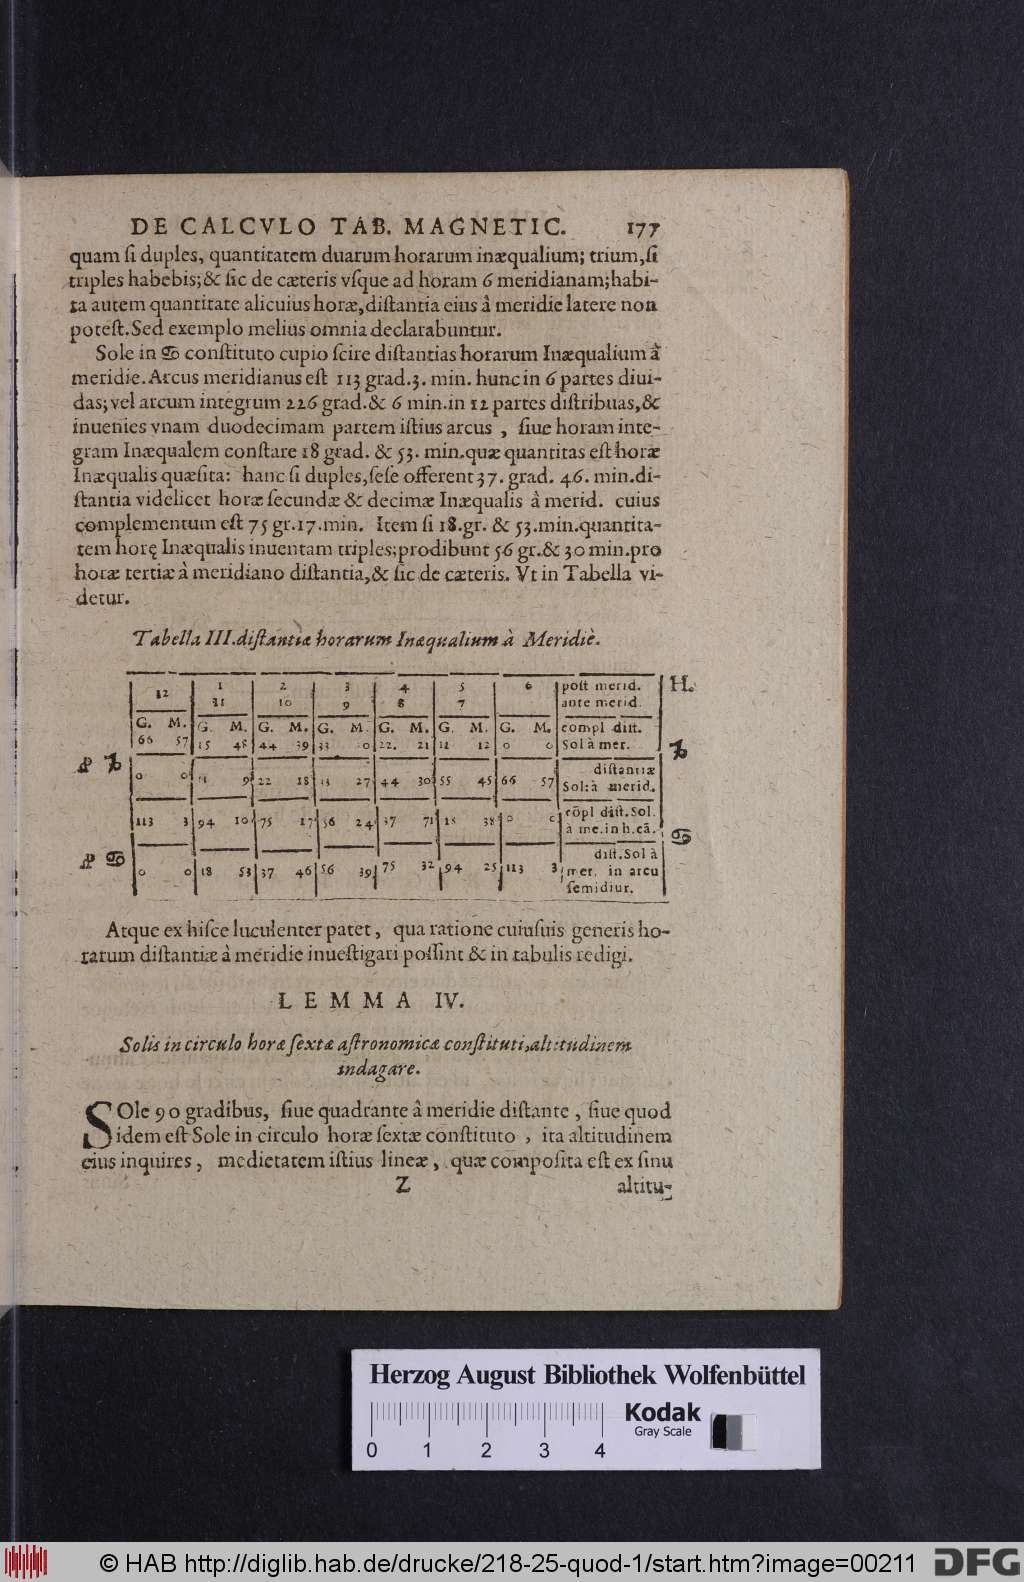 DE CALCVLO TAB. MAGNETIC. 177
quam ſi duples, quantitatem duarum horarum inæqualium; trium, ſi
triples habebis; & ſic de cæteris vſque ad horam 6 meridianam; habi-
ta autem quantitate alicuius horæ, diſtantia eius à meridie latere non
poteſt. Sed exemplo melius omnia declarabuntur.
Sole in ♋ conſtituto cupio ſcire diſtantias horarum Inæqualium à
meridie. Arcus meridianus eſt 113 grad. 3. min. hunc in 6 partes diui-
das; vel arcum integrum 226 grad. & 6 min. in 12 partes diſtribuas, &
inuenies vnam duodecimam partem iſtius arcus, ſiue horam inte-
gram Inæqualem conſtare 18 grad. & 53. min. quæ quantitas eſt horæ
Inæqualis quæſita: hanc ſi duples, ſeſe offerent 37. grad. 46. min. di-
ſtantia videlicet horæ ſecundæ & decimæ Inæqualis à merid. cuius
complementum eſt 75 gr. 17. min. Item ſi 18. gr. & 53. min. quantita-
tem horę Inæqualis inuentam triples; prodibunt 56 gr. & 30 min. pro
horæ tertiæ à meridiano diſtantia, & ſic de cæteris. Vt in Tabella vi-
detur.
Tabella III. diſtantiæ horarum Inæqualium à Meridiè.
12 1 2 3 4 5 6 poſt merid. H.
11 10 9 8 7 ante merid.
G. M. G. M. G. M. G. M. G. M. G. M. G. M. compl diſt.
66 57 15 48 44 39 33 0 22. 21 11 12 0 0 Sol à mer. ♑
♑ 0 0 11 9 22 18 13 27 44 30 55 45 66 57 diſtantiæ
Sol: à merid.
113 3 94 10 75 17 56 24 37 71 18 38 0 0 cõpl diſt. Sol.
à me. in h. cã. ♋
♋ 0 0 18 53 37 46 56 39 75 32 94 25 113 3 diſt. Sol à
mer. in arcu
ſemidiur.
Atque ex hiſce luculenter patet, qua ratione cuiuſuis generis ho-
rarum diſtantiæ à meridie inueſtigari poſſint & in tabulis redigi.
LEMMA IV.
Solis in circulo horæ ſextæ aſtronomicæ conſtituti, altitudinem
indagare.
SOle 90 gradibus, ſiue quadrante à meridie diſtante, ſiue quod
idem eſt Sole in circulo horæ ſextæ conſtituto, ita altitudinem
eius inquires, medietatem iſtius lineæ, quæ compoſita eſt ex ſinu
Z altitu-
Herzog August Bibliothek Wolfenbüttel
Kodak
Gray Scale
0 1 2 3 4
© HAB http://diglib.hab.de/drucke/218-25-quod-1/start.htm?image=00211 DFG